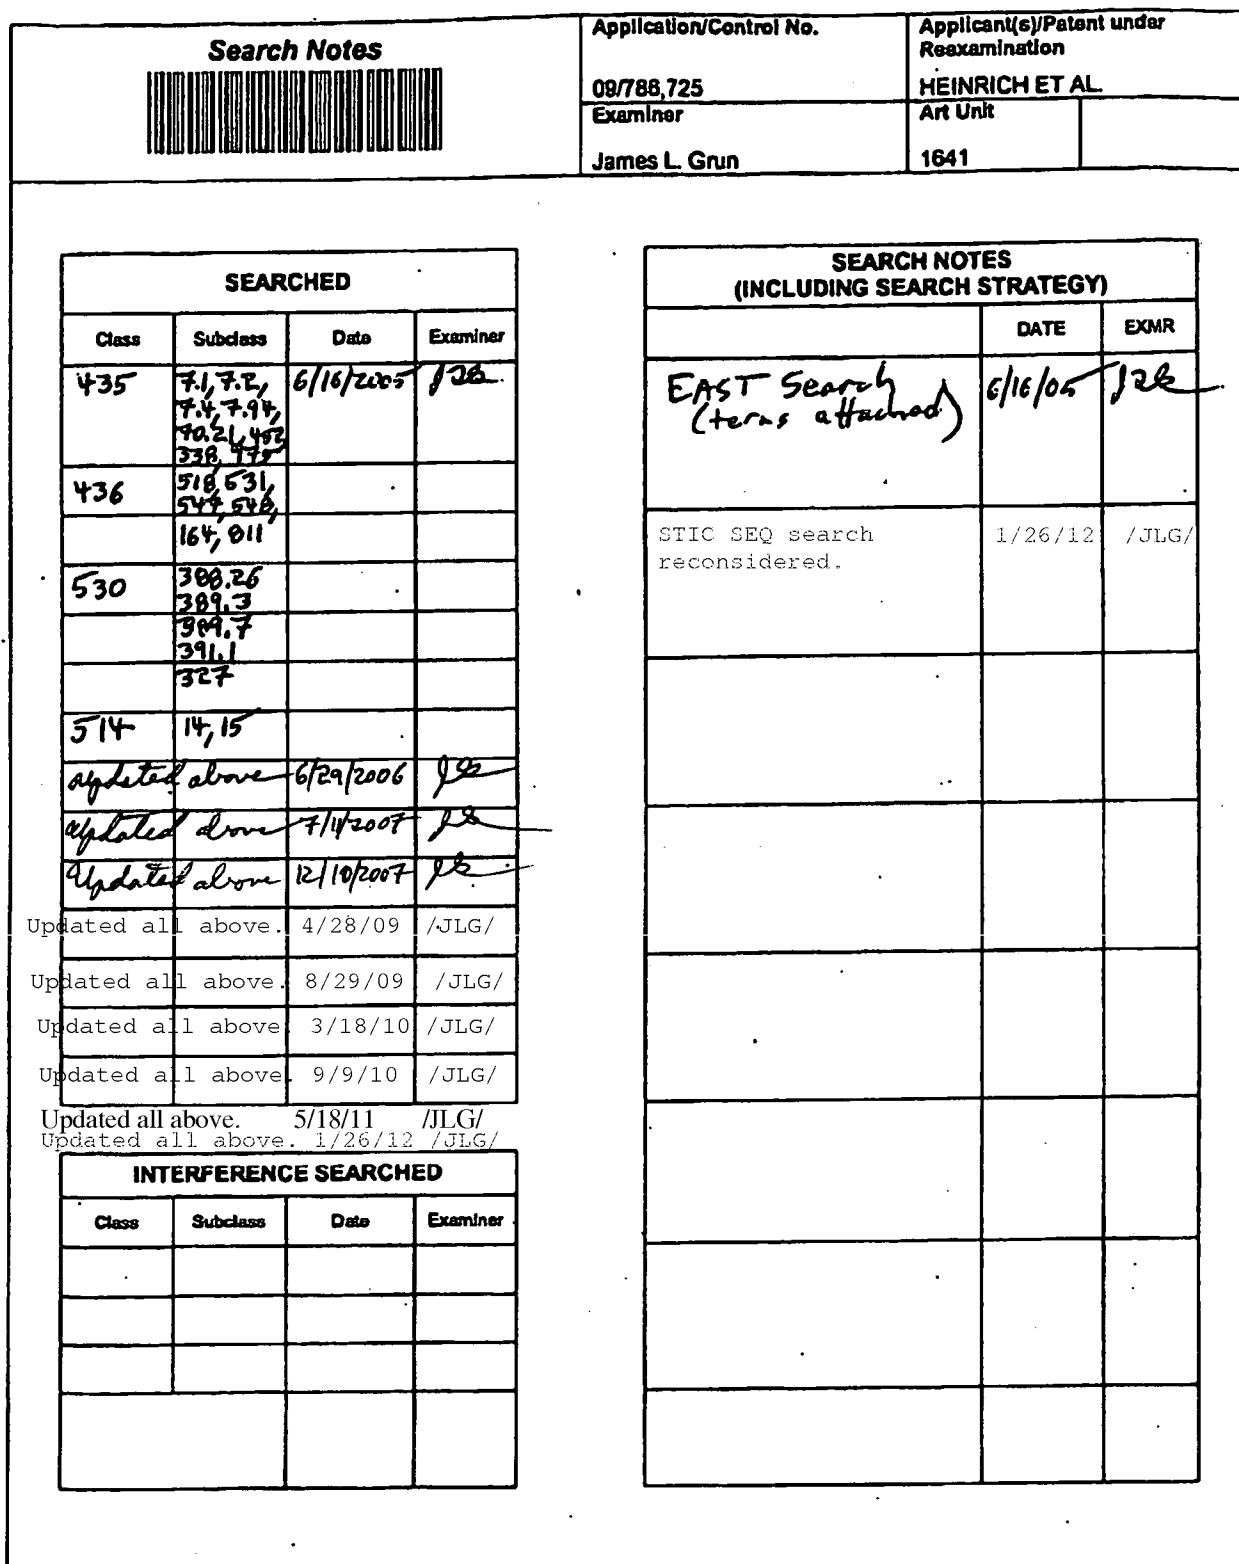 Search Notes
Application/Control No.
09/788,725
Applicant(s)/Patent under
Reexamination
HEINRICH ET AL.
Examiner
James L. Grun
Art Unit
1641
SEARCHED
Class Subclass Date Examiner
435 7.1, 7.2, 6/16/2005
7.4, 7.94,
70.21, 452
338, 975
436 518, 531,
544, 548,
164, 811
530 388.26
389.3
389.7
391.1
327
514 14, 15
updated above 6/29/2006
updated above 7/11/2007
Updated above 12/10/2007
Updated all above. 4/28/09 /JLG/
Updated all above. 8/29/09 /JLG/
Updated all above. 3/18/10 /JLG/
Updated all above. 9/9/10 /JLG/
Updated all above. 5/18/11 /JLG/
Updated all above. 1/26/12 /JLG/
INTERFERENCE SEARCHED
Class Subclass Date Examiner
SEARCH NOTES
(INCLUDING SEARCH STRATEGY)
DATE EXMR
EAST Search 6/16/05
(terms attached)
STIC SEQ search 1/26/12 /JLG/
reconsidered.